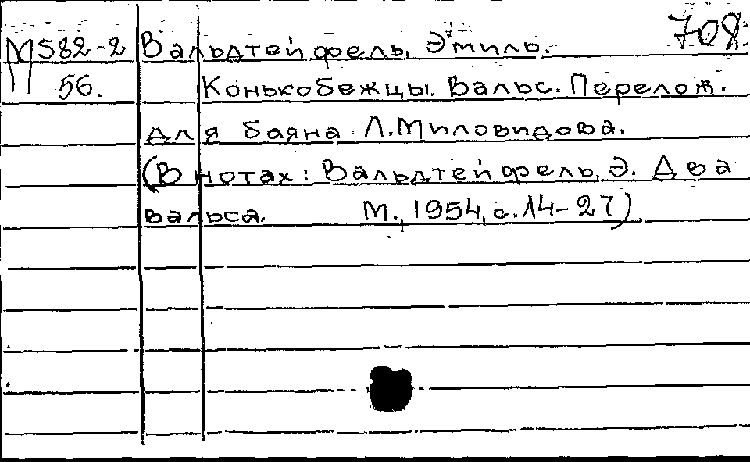 М582-2 Вальдтейфель, Эмиль. 708
56. Конькобежцы. Вальс. Перелож.
для баяна Л. Миловидова.
(В нотах: Вальдтейфель, Э. Два
вальса. М., 1954, с. 14-27)